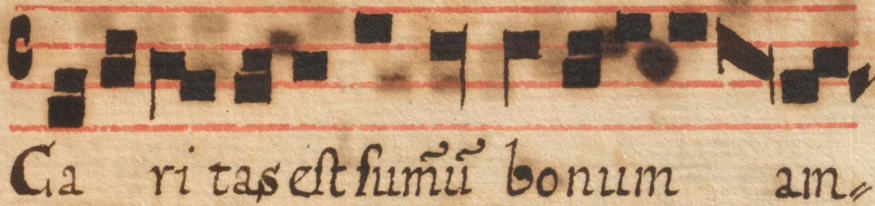 Ca ri tas est sum̃ũ bonum am⸗